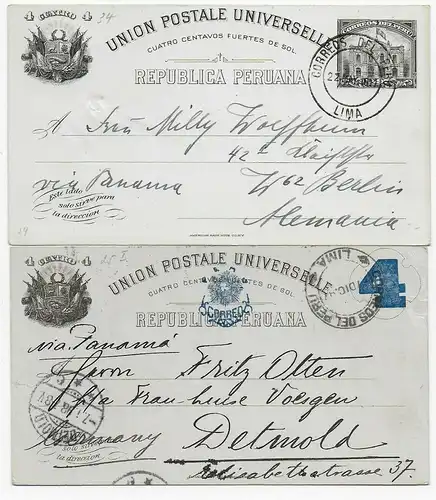 4 CUATRO 4
34
UNION POSTALE UNIVERSELLE
CUATRO CENTAVOS FUERTES DE SOL.
REPUBLICA PERUANA
CORREOS DEL PERU
CORREOS DEL
LIMA
A Frau Milly Wolffheim
42
via Panama
W 62 Berlin
Este lado
solo sirve para
la direccion
Alemania
4 CUATRO 4
UNION POSTALE UNIVERSELLE
CUATRO CENTAVOS FUERTES DE SOL.
REPUBLICA PERUANA
CORREOS
4
LIMA
CORREOS DEL PERU
via Panamá
Herrn Fritz Otten
p/a Frau Voesgen
Germany Detmold
solo sirve para
la direccion
Elisabethstrasse 37.